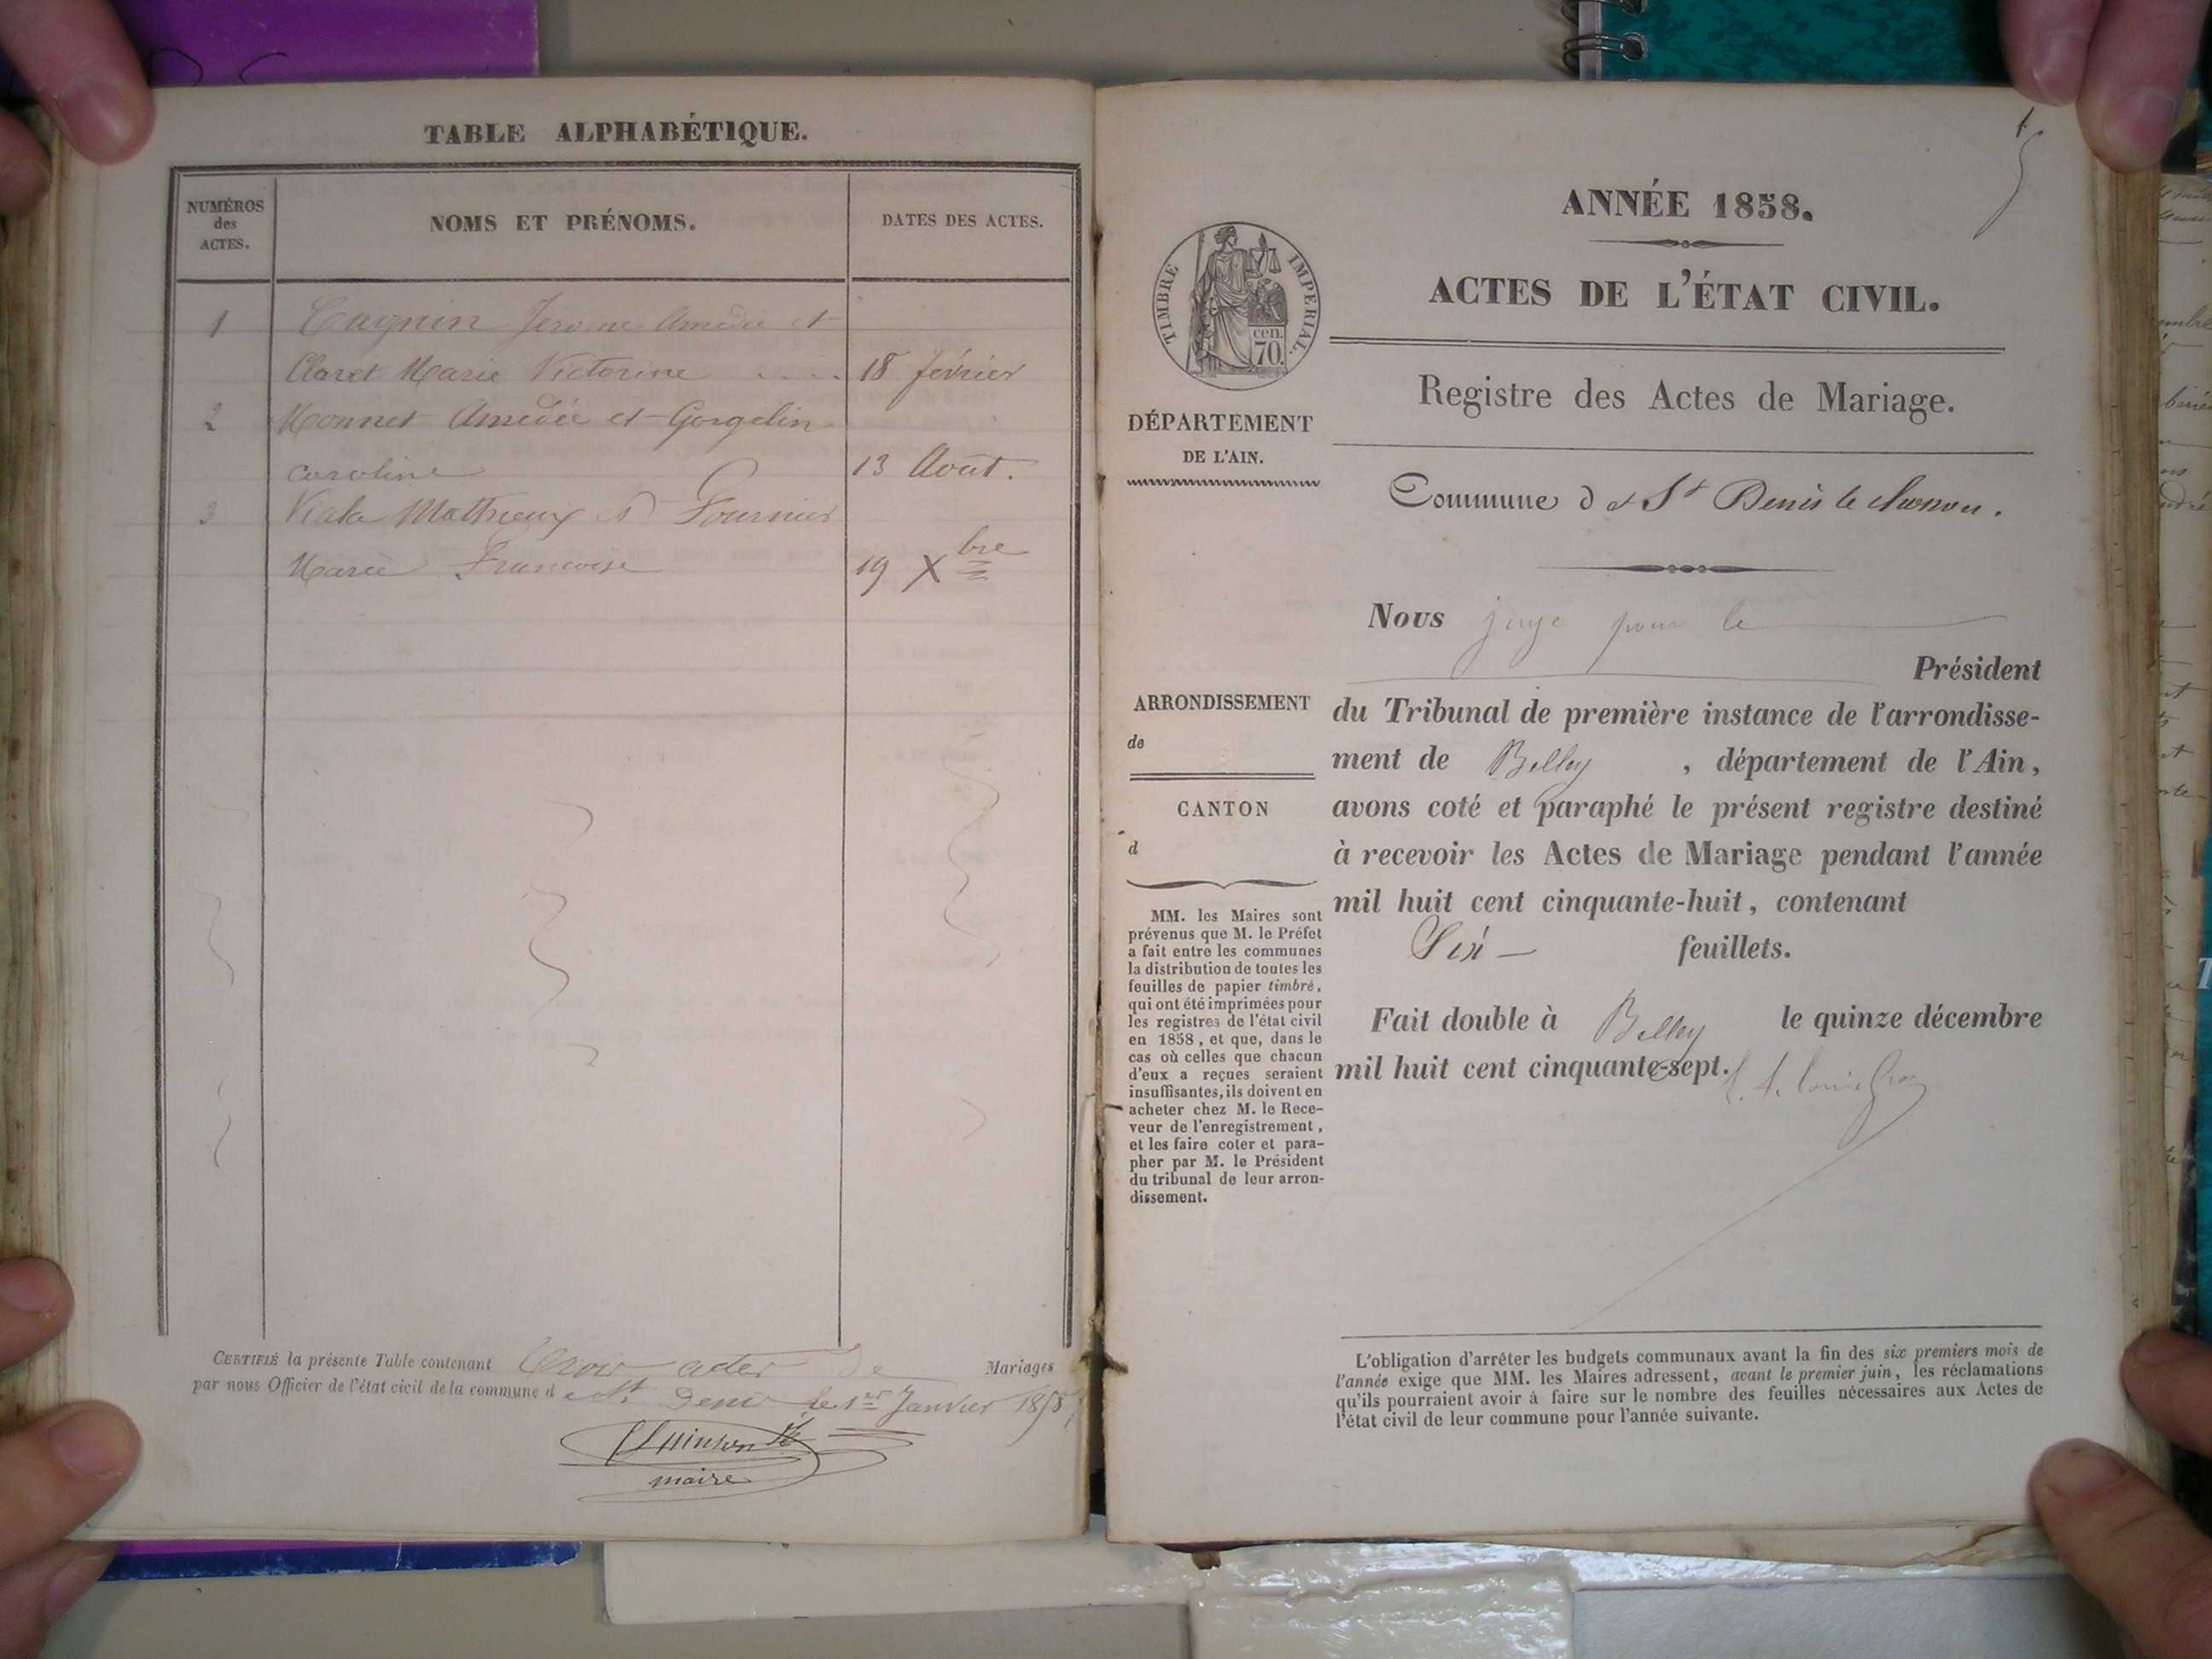 TABLE ALPHABÉTIQUE.
NUMÉROS
des
ACTES.
NOMS ET PRÉNOMS.
DATES DES ACTES.
1 Cagnin Jerome Amédée et
Claret Marie Victorine .... 18 février
2 Monnet Amédée et Gorgelin
caroline 13 Août.
3 Viala Mathieux et Fournier
Marie Francoise 19 Xbre
CERTIFIÉ la présente Table contenant trois actes de Mariages
par nous Officier de l'état civil de la commune de St Denis le 1er Janvier 1858
maire
1
ANNÉE 1858.
ACTES DE L'ÉTAT CIVIL.
TIMBRE IMPERIAL.
cen.
70.
Registre des Actes de Mariage.
DÉPARTEMENT
DE L'AIN.
Commune d e St Denis le chosson.
Nous juge pour le
Président
ARRONDISSEMENT
de
CANTON
d
du Tribunal de première instance de l'arrondisse-
ment de Belley , département de l'Ain,
avons coté et paraphé le présent registre destiné
à recevoir les Actes de Mariage pendant l'année
mil huit cent cinquante-huit, contenant
Six feuillets.
Fait double à Belley le quinze décembre
mil huit cent cinquante-sept.
MM. les Maires sont
prévenus que M. le Préfet
a fait entre les communes
la distribution de toutes les
feuilles de papier timbré,
qui ont été imprimées pour
les registres de l'état civil
en 1858, et que, dans le
cas où celles que chacun
d'eux a reçues seraient
insuffisantes, ils doivent en
acheter chez M. le Rece-
veur de l'enregistrement,
et les faire coter et para-
pher par M. le Président
du tribunal de leur arron-
dissement.
L'obligation d'arrêter les budgets communaux avant la fin des six premiers mois de
l'année exige que MM. les Maires adressent, avant le premier juin, les réclamations
qu'ils pourraient avoir à faire sur le nombre des feuilles nécessaires aux Actes de
l'état civil de leur commune pour l'année suivante.